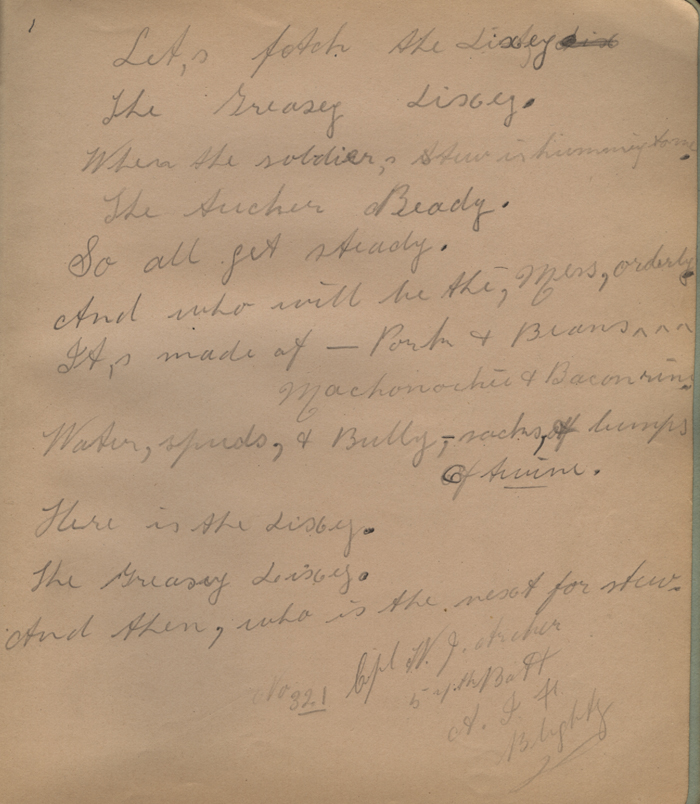 1
Let,s fotch the Dixey dix
The Greasey Dixey.
When the soldier,s stew is humming
The tucher Beady.
So all get steady.
And who will be the, Mess, orderly
It,s made of — Pork & Beans
Machonochie & Bacon rine
Water, spuds, & Bully, - sacks, & lumps
Of twine.
Here is the Dixey.
The Greasey Dixey.
And then, who is the next for stew.
No 321 Cpl W. J. Archer
54th Batt
A. I. F.
Blighty